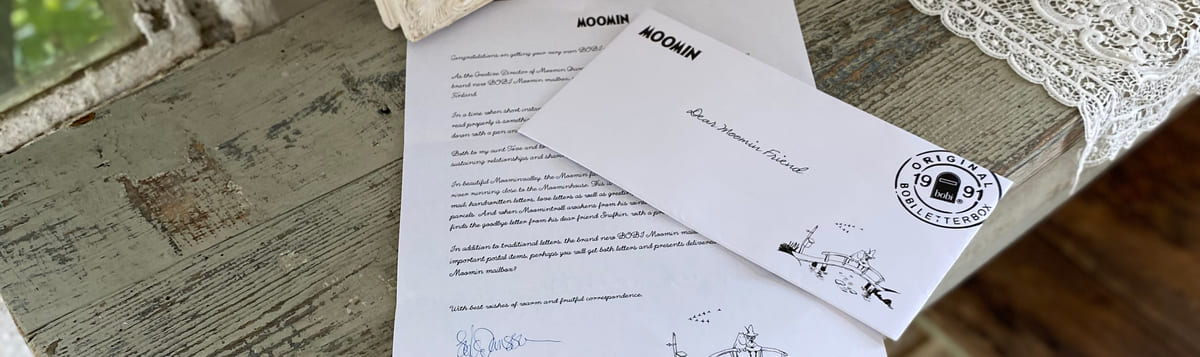 MOOMIN
Congratulations on getting your very own BOBI
As the Creative Director of Moomin
brand new BOBI Moomin mailbox
Finland.
In a time when short
read properly is
down with a pen
Both to my aunt Tove and
sustaining relationships and
In beautiful Moominvalley, the Moomin
river running close to the Moominhouse. This is
mail, handwritten letters, love letters as well as
parcels. And when Moomintroll awakens from his
finds the goodbye letter from his dear friend Snufkin, with a
In addition to traditional letters, the brand new BOBI Moomin
important postal items, perhaps you will get both letters and presents
Moomin mailbox?
With best wishes of warm and fruitful correspondence,
MOOMIN
Dear Moomin Friend
ORIGINAL
1991
bobi
BOBI LETTERBOX